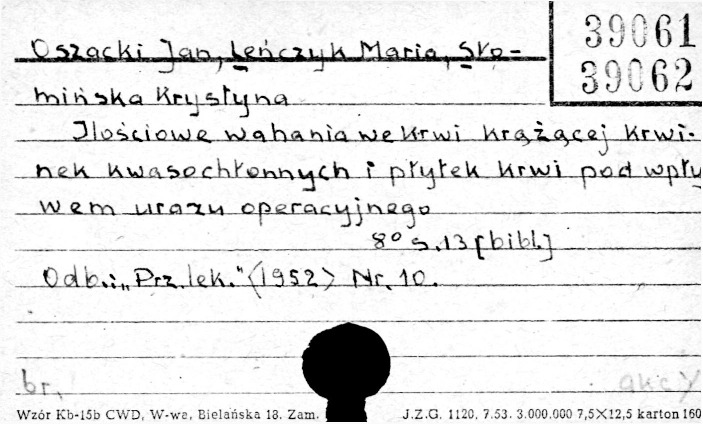 39061
39062
Oszacki Jan, Leńczyk Maria, Sło-
mińska Krystyna
Ilościowe wahania we krwi krążącej krwi-
nek kwasochłonnych i płytek krwi pod wpły
wem urazu operacyjnego
8° s.13 [bibl.]
Odb.: „Prz. lek." (1952) Nr. 10.
br.
Wzór Kb-15b CWD, W-wa, Bielańska 18. Zam.
J.Z.G. 1120. 7.53. 3.000.000 7,5×12,5 karton 160